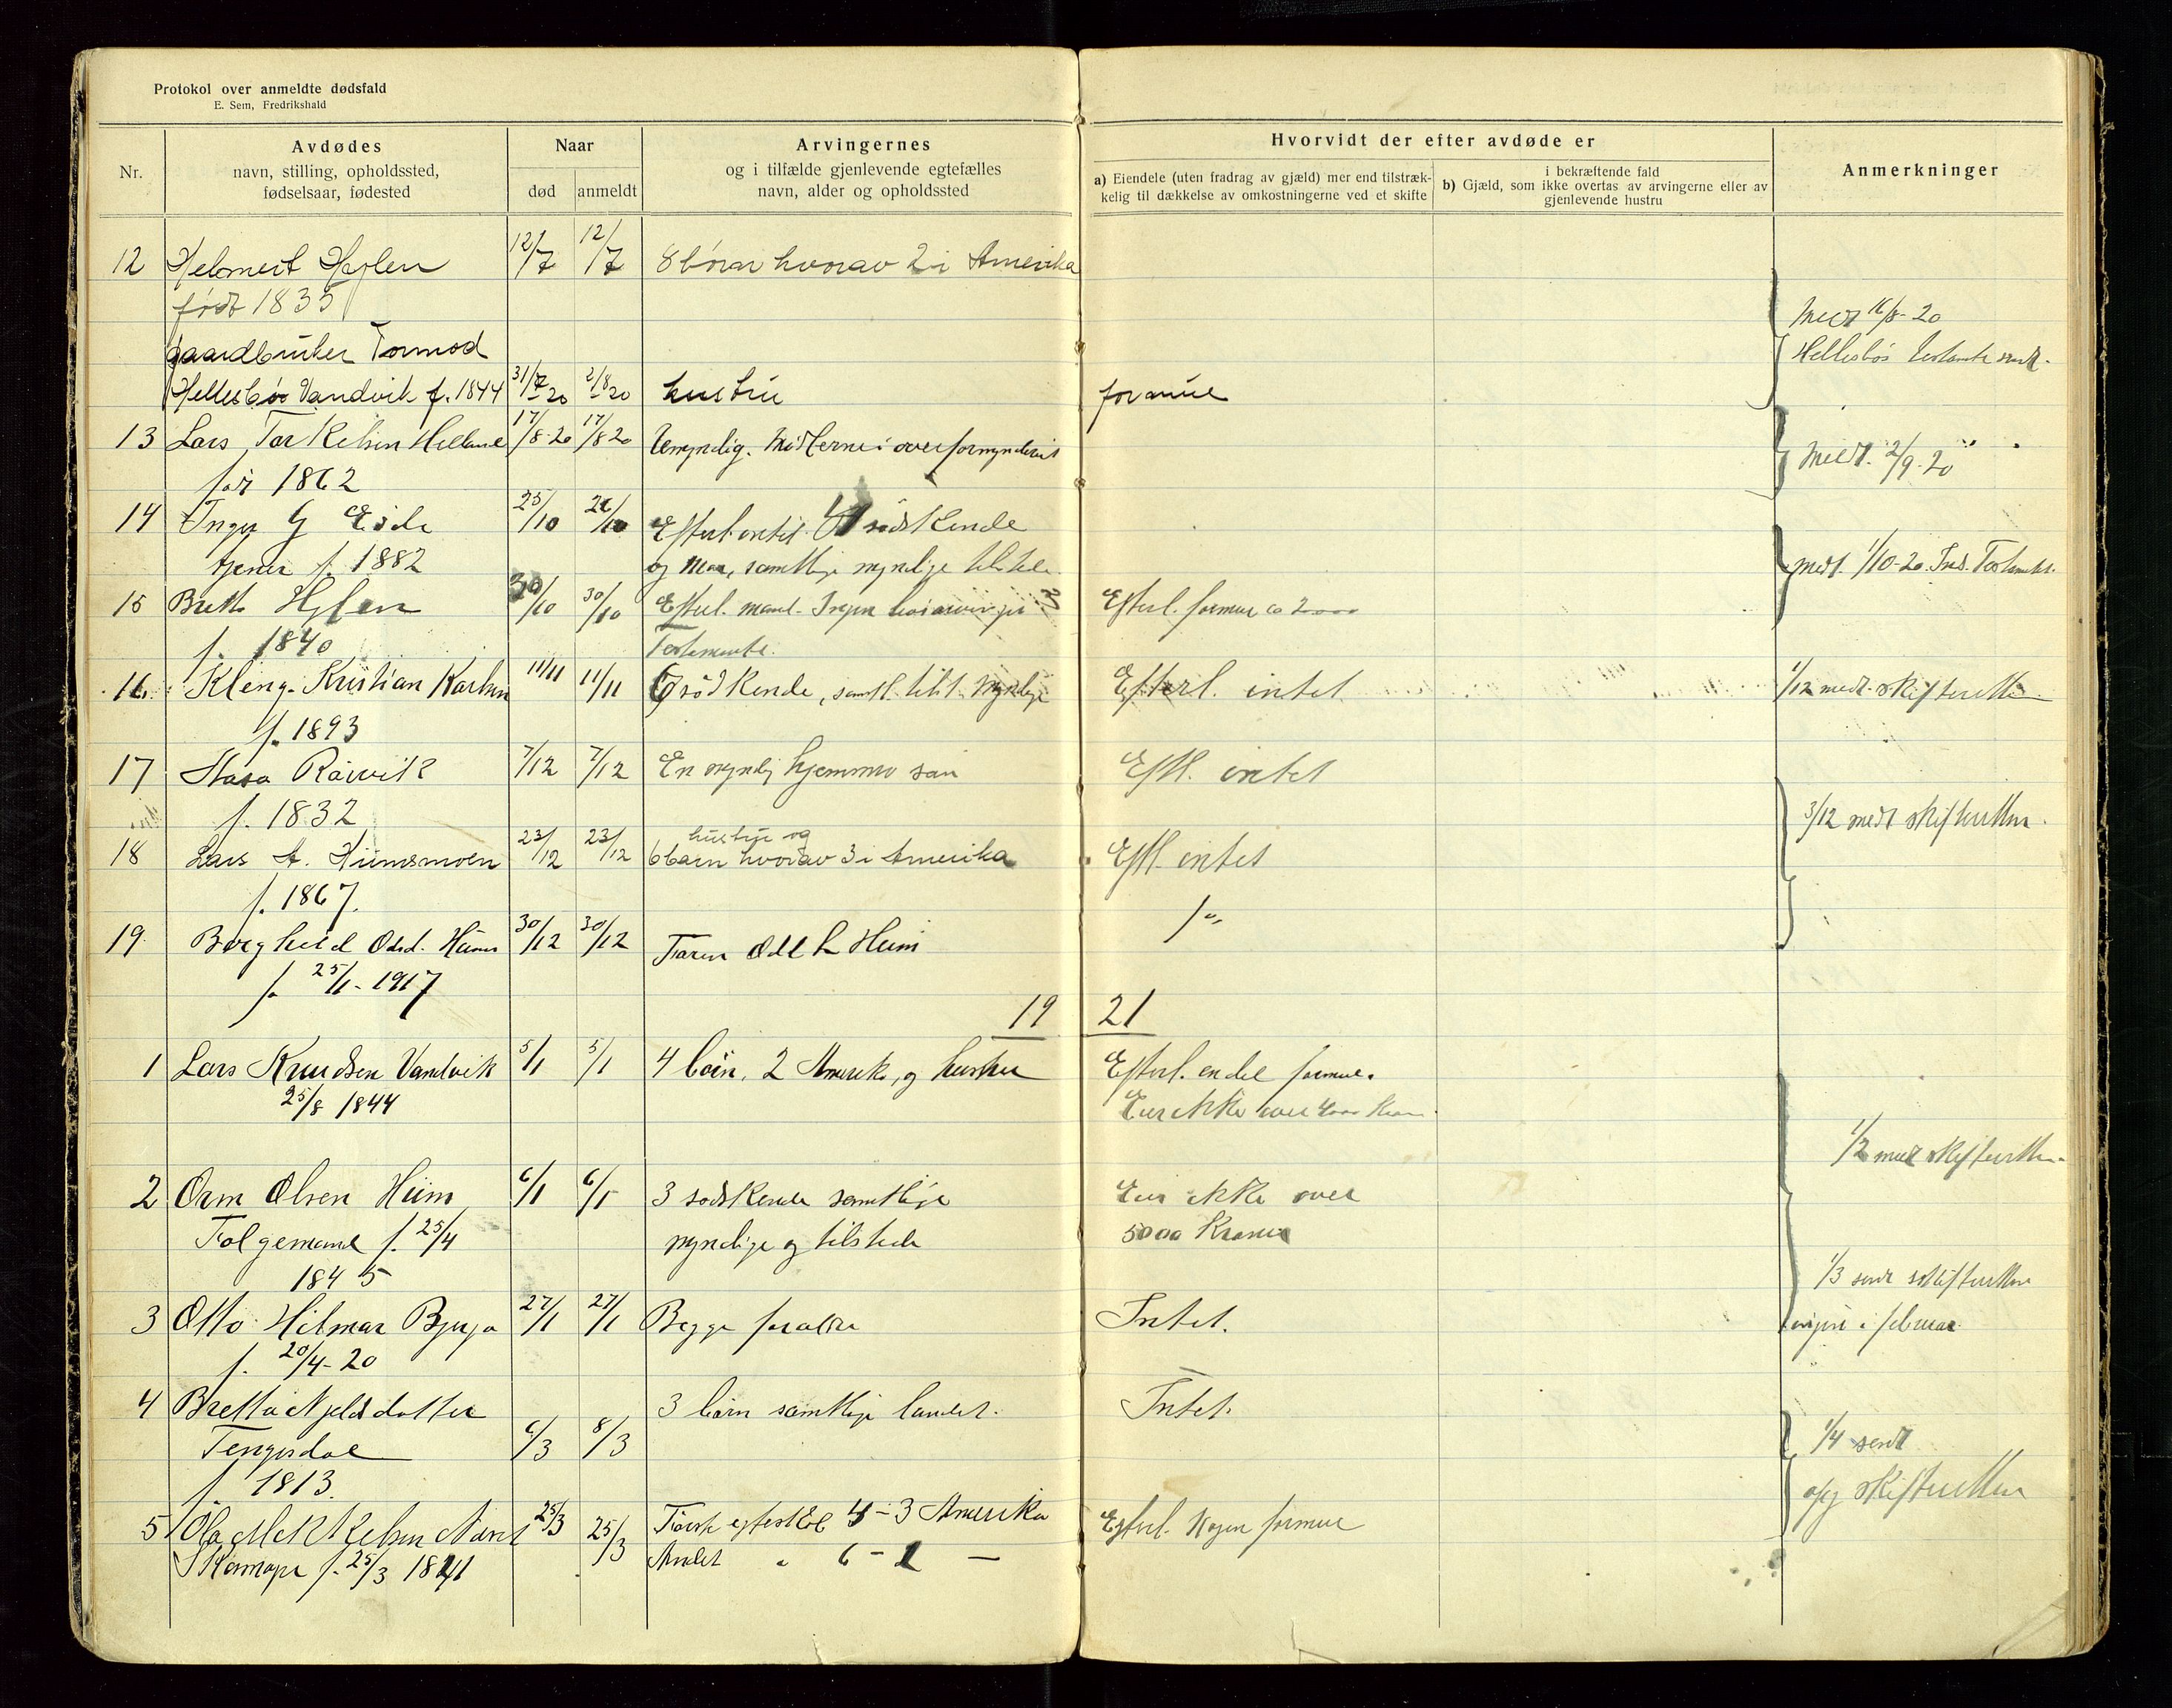 Protokol over anmeldte dødsfald
E. Sem, Fredrikshald
Nr.
Avdødes
navn, stilling, opholdssted,
fødselsaar, fødested
Naar
død
anmeldt
Arvingernes
og i tilfælde gjenlevende egtefælles
navn, alder og opholdssted
Hvorvidt der efter avdøde er
a) Eiendele (uten fradrag av gjæld) mer end tilstræk-
kelig til dækkelse av omkostningerne ved et skifte
i bekræftende fald
b) Gjæld, som ikke overtas av arvingerne eller av
gjenlevende hustru
Anmerkninger
12 Helmeit Hylen 12/7 12/7 8 börn hvorav 2 i Amerika
født 1835
Medt 16/8-20
gaardbruker Tormod
Hellesbös Testamente sendt.
Hellesbö Vandvik f. 1844 31/7 20 2/8 20 hustru formue
13 Lars Torkelsen Helland 17/8-20 17/8 20 Umyndig. Midlerne i overformynderiet
Medt. 2/9-20
før 1862
14 Inger G Eide 25/10 26/10 Efterl. intet. 4 södskende
tjener f. 1882 og Mor, samtlige myndige tilstede
medt. 1/10-20. Ind. Testament.
15 Britte Hylen 30/10 30/10 Efterl. mand. Ingen livsarvinger Efterl. formue ca 2000
f. 1840 Testamente.
16. Kleng. Kristian Karlsen 11/11 11/11 6 södskende, samtl. tilst. myndige Efterl. intet 1/12 medt. skifteretten
f. 1893
17 Stasa Rörvik 7/12 7/12 En myndig hjemmev sön Eftl. intet
f. 1832
3/12 medt skifteretten.
hustru og
18 Lars A. Hiimsmoen 23/12 23/12 6 barn hvorav 3 i Amerika Eftl. intet
f. 1867.
19. Borghild Odd. Hiim 30/12 30/12 Faren Odd L Hiim
f. 25/1-1917
19 21
1 Lars Knudsen Vandvik 5/1 5/1 4 börn, 2 Amerika, og hustru Efterl. endel formue.
25/8 1844 Eier ikke over 4000 Kroner.
1/2 medt skifteretten.
2 Orm Olsen Hiim 6/1 6/1 3 södskende samtlige Eier ikke over
Folgemand f. 25/4 myndige og tilstede 5000 Kroner
1845
1/3 sendt skifteretten
3 Otto Hilmar Bjerga 27/1 27/1 Begge foraldre Intet.
ingen i februar
f. 20/4-20
4 Bretta Njeldsdatter 3 börn samtlige landet. Intet.
Tengesdal 6/3 8/3
1/4 sendt
f. 1813.
opg skifteretten
5 Ola Melkelsen 25/3 25/3 Förste egteskab 4-3 Amerika Efterl. Nogen formue
f. 25/3 1841 Andet " 6-1 —